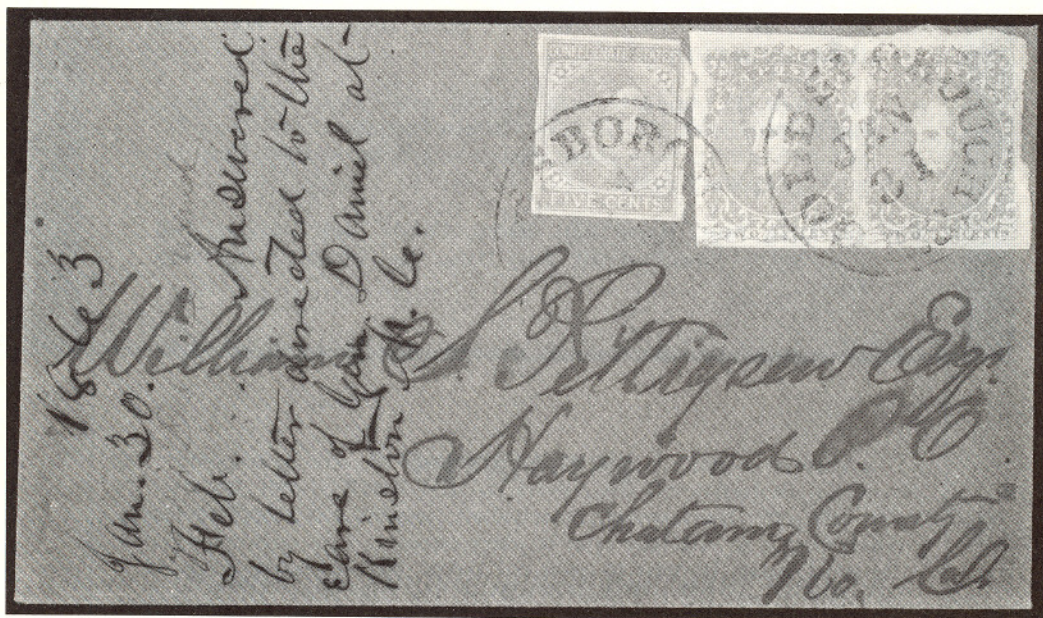 FIVE CENTS
BORO
William S. Pettigrew Esqr.
Haywood P. O.
Chatam County
No. Ca.
1863
Jan. 30.
Feb. Answered
by letter directed to the
care of Gen. Daniel at
Kinston N. Ca.